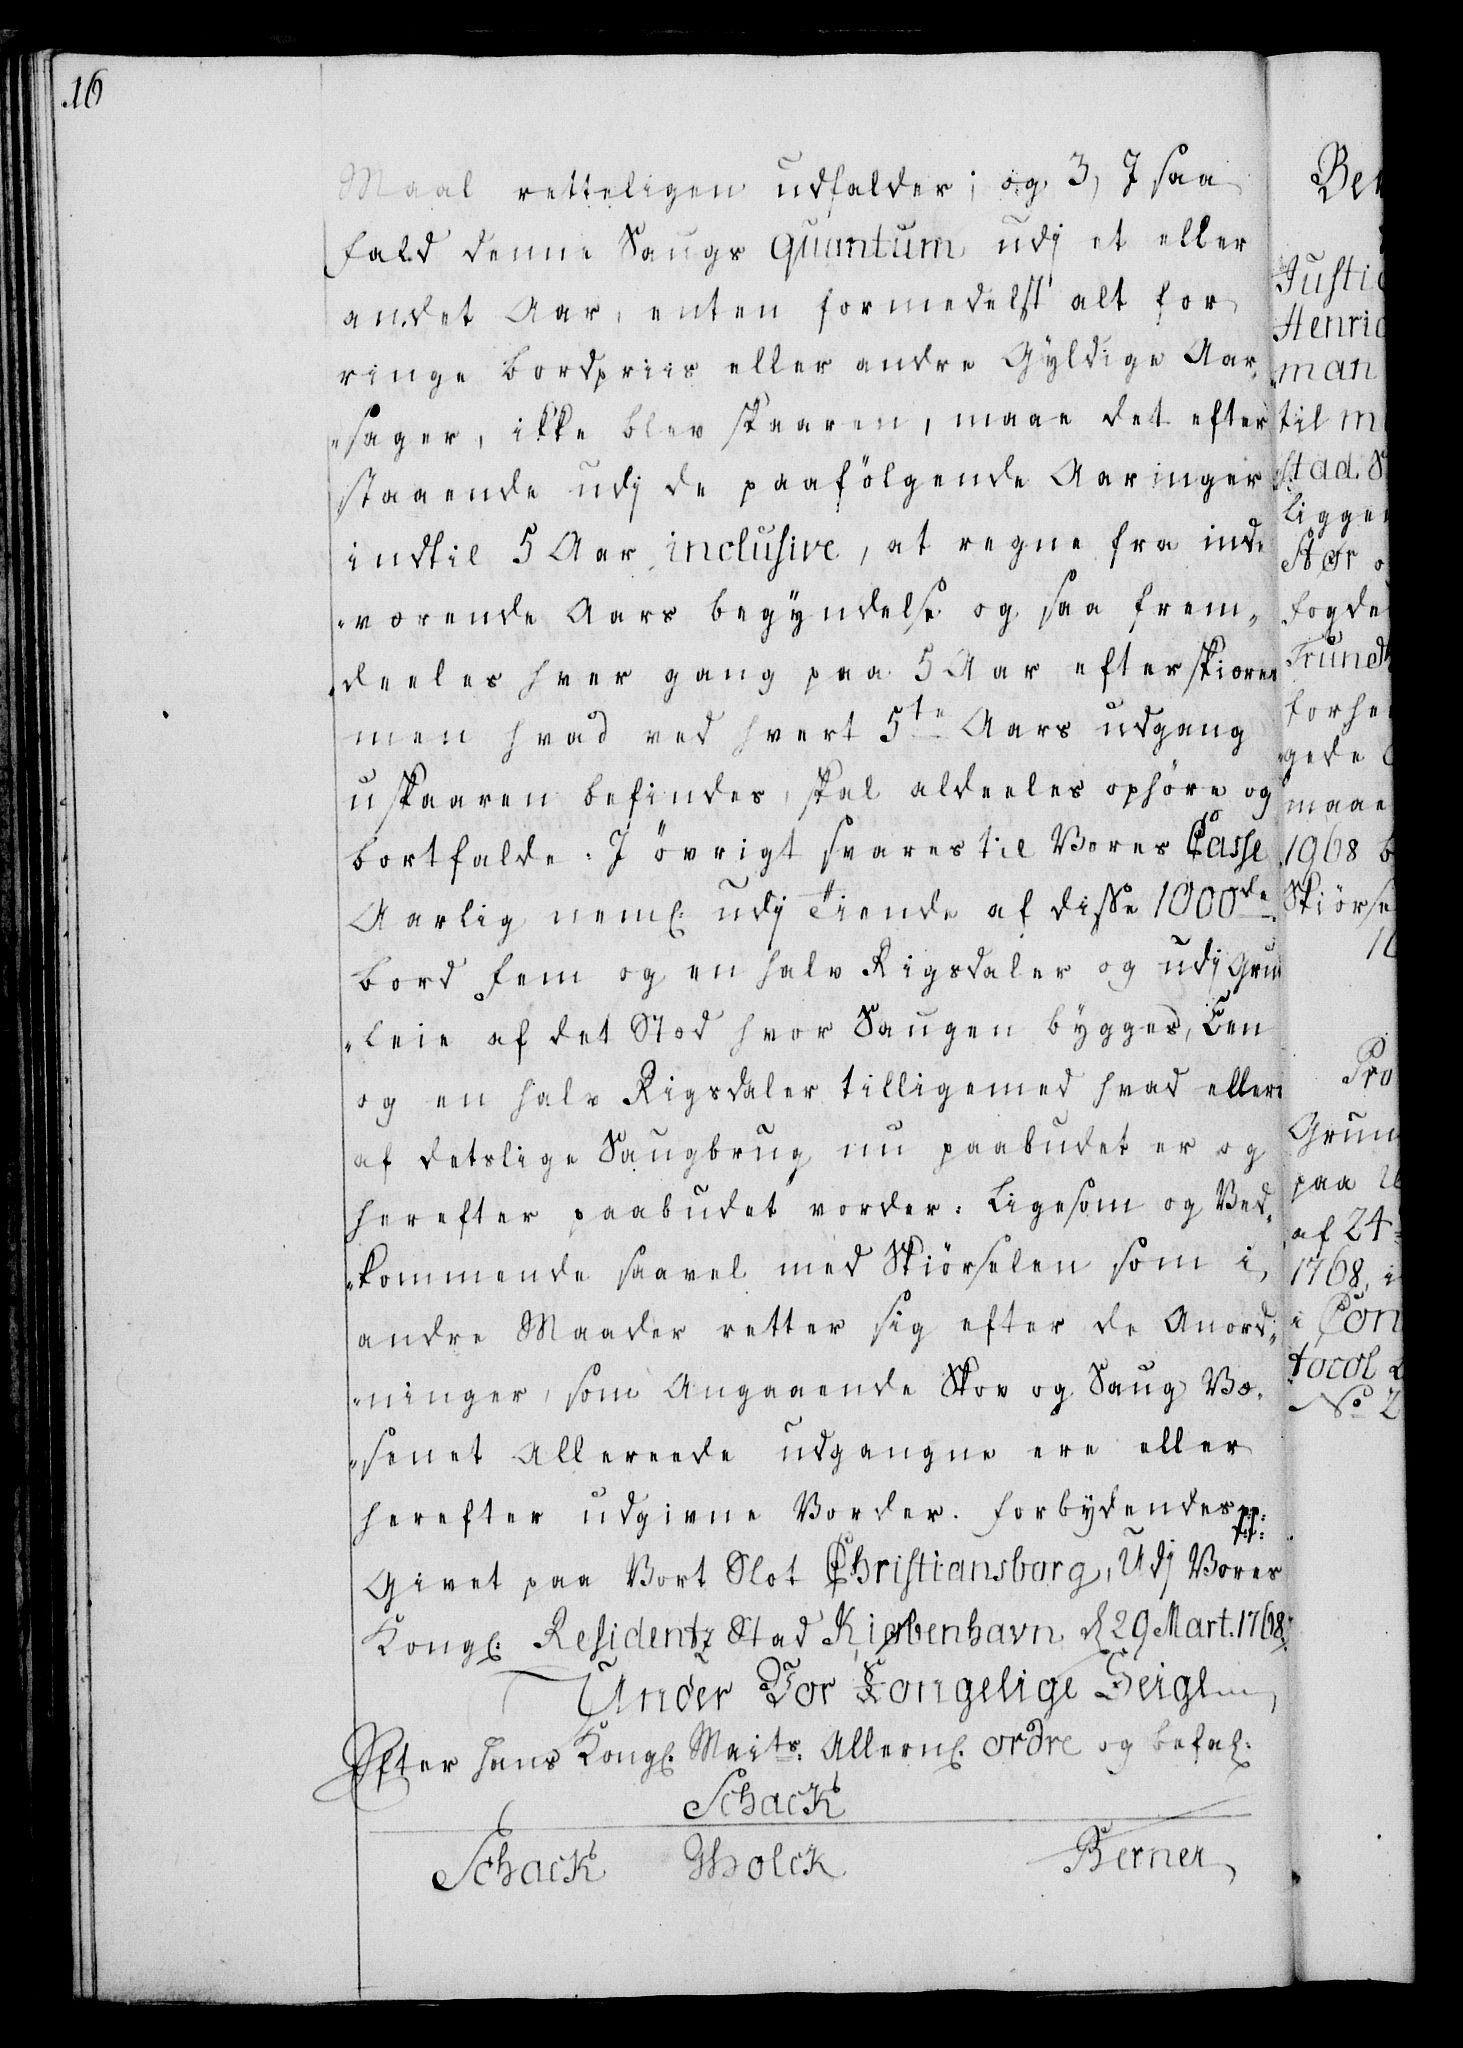 16
Maal retteligen udfalder; og 3, J saa
fald denne Saugs quantum udj et eller
andet Aar, enten formedelst alt for
ringe bordpriis eller andre Gyldige Aar„
„sager, ikke blev skaaren, maae det efter
staaende udj de paafölgende Aaringer
indtil 5 Aar inclusive, at regne fra inde
„værende Aars begyndelse og saa frem„
„deeles hver gang paa 5 Aar efterskiæres
men hvad ved hvert 5te Aars udgang
uskaaren befindes, skal aldeeles ophöre og
bortfalde. J övrigt svares til Vores Casse
Aarlig neml: udj Tiende af disse 1000de
bord fem og en halv Rigsdaler og udj Grun
„leie af det Stæd hvor Saugen bygges, Een
og en halv Rigsdaler tilligemed hvad ellers
af detslige Saugbrug nu paabudet er og
herefter paabudet vorder: Ligesom og Ved„
„kommende saavel med Skiörselen som i
andre Maader retter sig efter de Anord„
„ninger, som Angaaende Skov og Saug Væ„
„senet Allereede udgangne ere eller
herefter udgivne Vorder. forbydendes pp:
Givet paa Vort Slot Christiansborg, Udj Vores
Kongl: Residentz Stad Kiøbenhavn d 29 Mart. 1768.
Under Vor Kongelige Seigl
Efter Hans Kongl: Maits: Allern: ordre og befal:
Schack
Schack Gholck Berner
Ber
Justic
Henric
„man
til m
stad. S
ligger
Stør o
fogde
Trundh
forhe
„gede
maae
1968 b
Skiörse
Pro
Grun
paa
af 24
1768, i
i Con
tocol
No 2